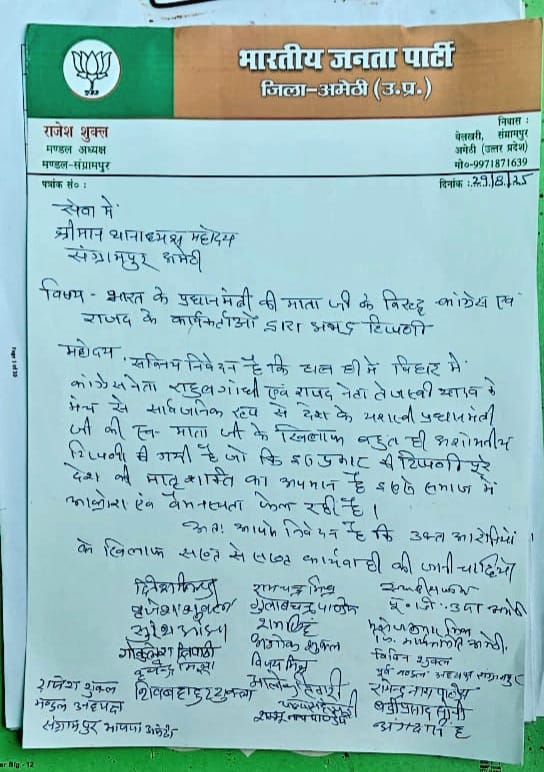 भारतीय जनता पार्टी
जिला-अमेठी (उ.प्र.)
राजेश शुक्ल
मण्डल अध्यक्ष
मण्डल-संग्रामपुर
निवास :
बेलखरी, संग्रामपुर
अमेठी (उत्तर प्रदेश)
मो०-9971871639
पत्रांक सं० :
दिनांक :29/8/25
सेवा में
श्रीमान थानाध्यक्ष महोदय
संग्रामपुर अमेठी
विषय - भारत के प्रधानमंत्री की माता जी के विरुद्ध कांग्रेस एवं
राजद के कार्यकर्ताओं द्वारा अभद्र टिप्पणी
महोदय, सविनय निवेदन है कि हाल ही में बिहार में
कांग्रेस नेता राहुल गांधी एवं राजद नेता तेजस्वी यादव के
मंच से सार्वजनिक रूप से देश के यशस्वी प्रधानमंत्री
जी की स्व० माता जी के खिलाफ बहुत ही अशोभनीय
टिप्पणी की गयी है जो कि इस प्रकार की टिप्पणी पूरे
देश की मातृशक्ति का अपमान है इससे समाज में
आक्रोश एवं वैमनस्यता फैल रही है।
अतः आपसे निवेदन है कि उक्त आरोपियों
के खिलाफ सख्त से सख्त कार्यवाही की जानी चाहिए।
रामचन्द्र मिश्र
बृजेश शुक्ला गुलाबचन्द्र पाण्डेय
सुरेश
अशोक शुक्ल
विपिन शुक्ल
विजय मिश्र
पूर्व मण्डल अध्यक्ष संग्रामपुर
राजेश शुक्ल शिवबहादुर शुक्ला तिवारी
मण्डल अध्यक्ष
संग्रामपुर भाजपा अमेठी
Page 1 of 10
er Blg - 12